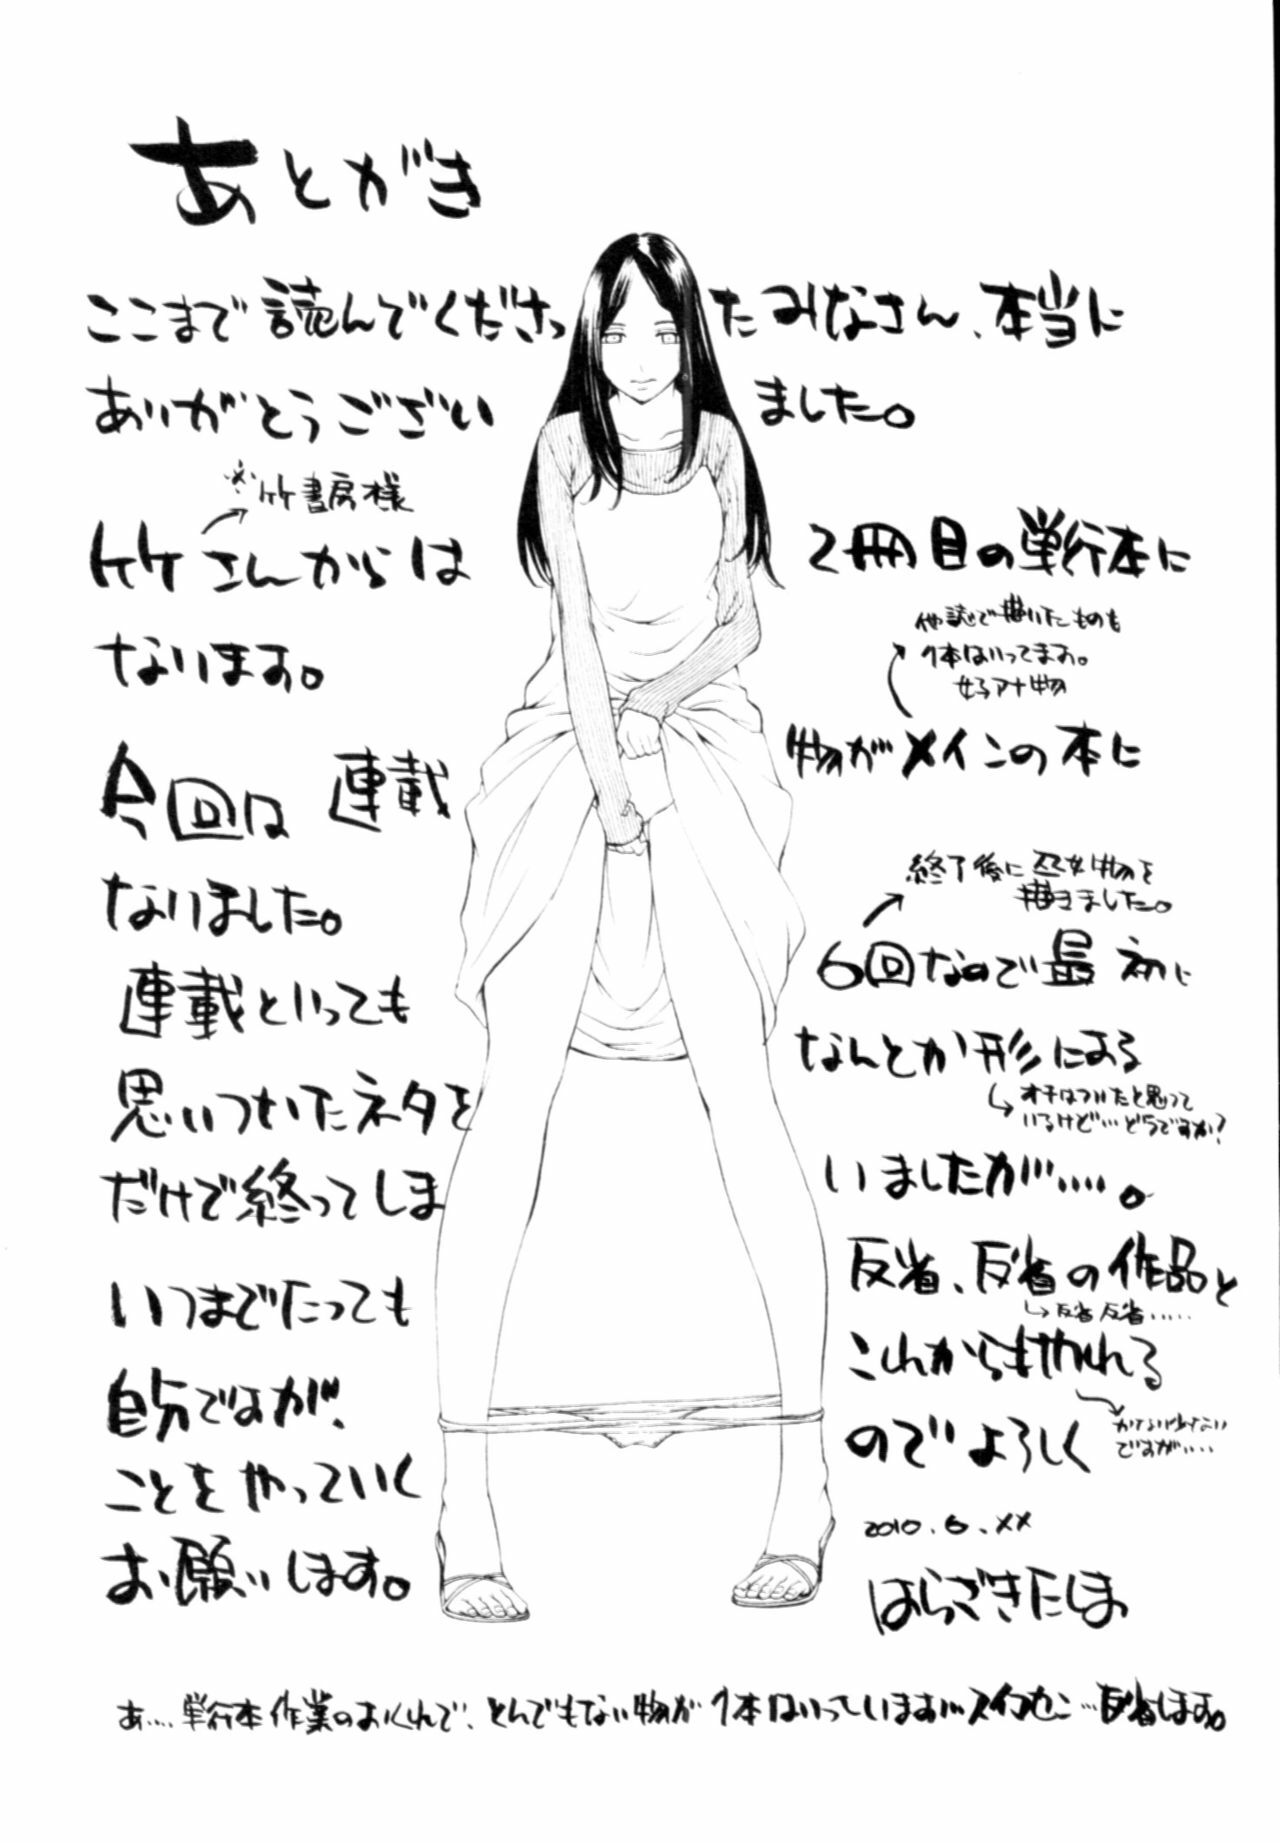 あとがき
ここまで読んでくださったみなさん、本当に
ありがとうございました。
※竹書房様
竹さんからは 2冊目の単行本に
なります。
他誌で描いたものも
1本はいってます。
女子アナ物
今回は連載物がメインの本に
なりました。
終了後に 物を
描きました。
連載といっても6回なので最初に
思いついたネタをなんとか形にする
オチはついたと思って
いるけど…どうですか?
だけで終ってしまいましたが……。
いつまでたっても反省、反省の作品と
反省反省……
自分ですが、これからもやれる
ことをやっていくのでよろしく
かなり少ない
ですが……
お願いします。
2010.6.××
はらざきたくま
あ……単行本作業のおくれで、とんでもない物が1本はいっています…スイマセン…反省します。